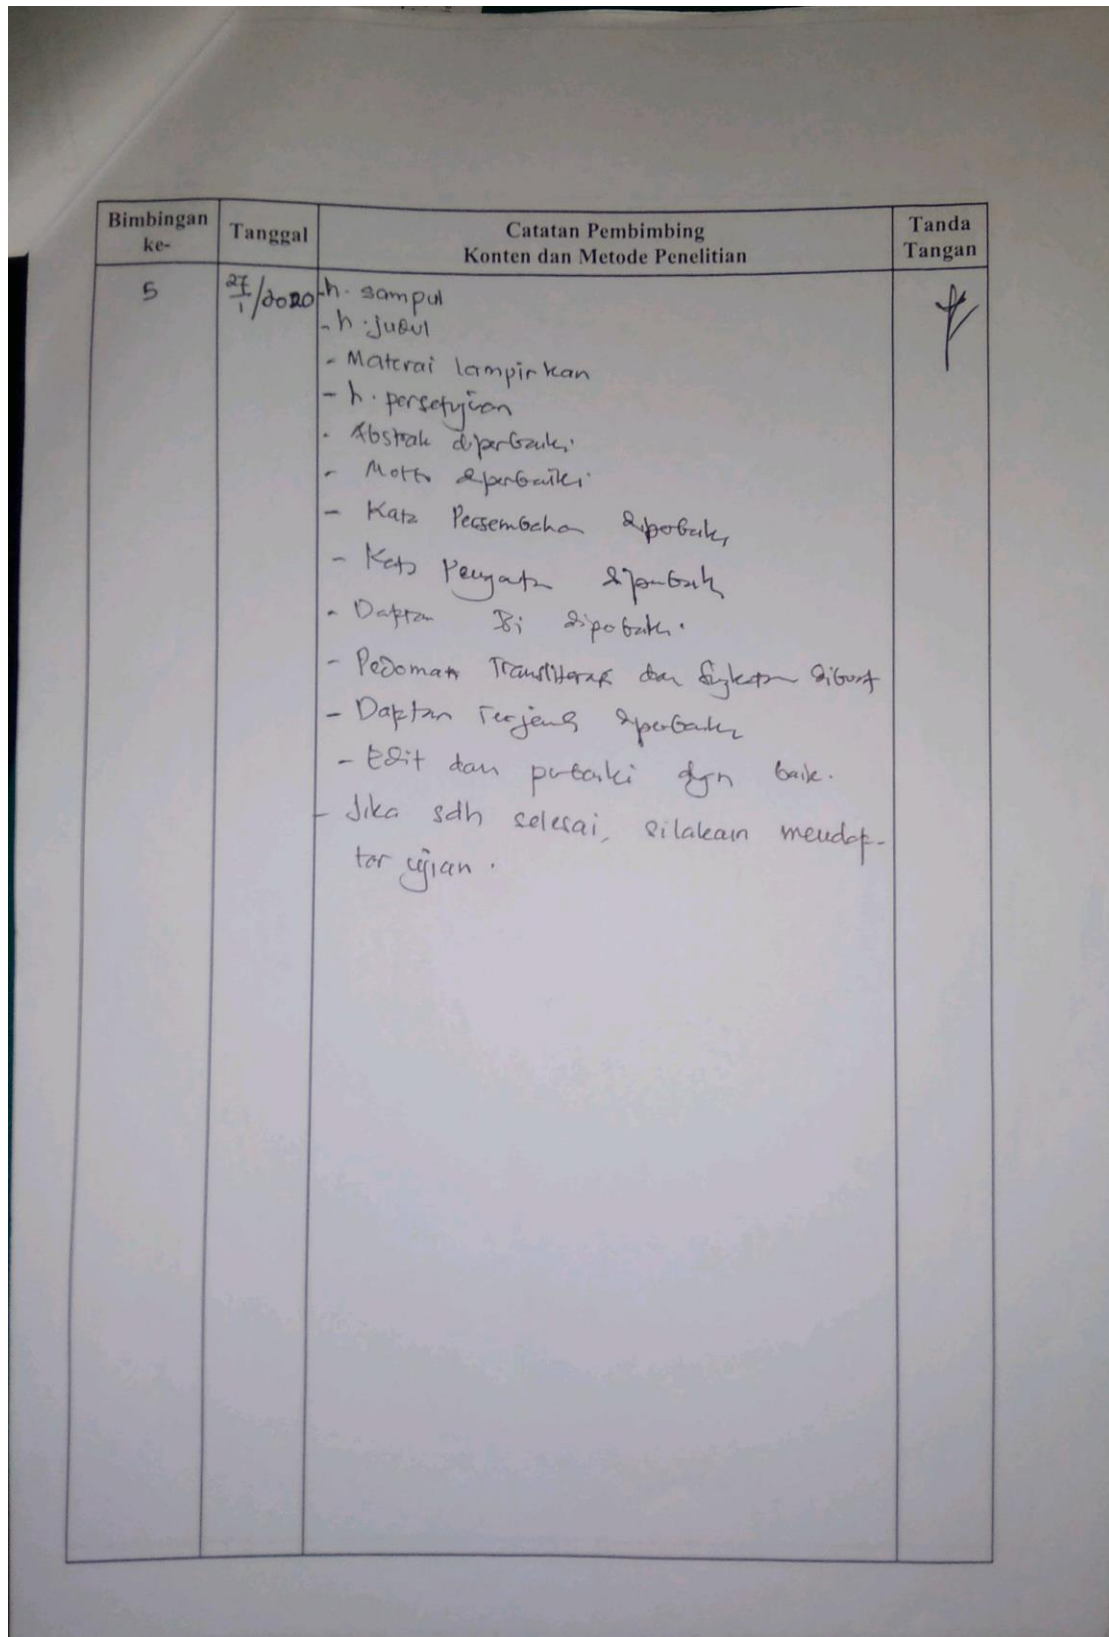 Bimbingan ke-
Tanggal
Catatan Pembimbing
Konten dan Metode Penelitian
Tanda Tangan
5
27/1/2020
- h. sampul
- h. judul
- Materai lampirkan
- h. persetujuan
- Abstrak diperbaiki
- Motto diperbaiki
- Kata Persembahan diperbaiki
- Kata Pengantar diperbaiki
- Daftar Isi diperbaiki.
- Pedoman Transliterasi dan Singkatan dibuat
- Daftar diperbaiki
- Edit dan perbaiki dgn baik.
- Jika sdh selesai, silakan mendaf-
tar ujian.